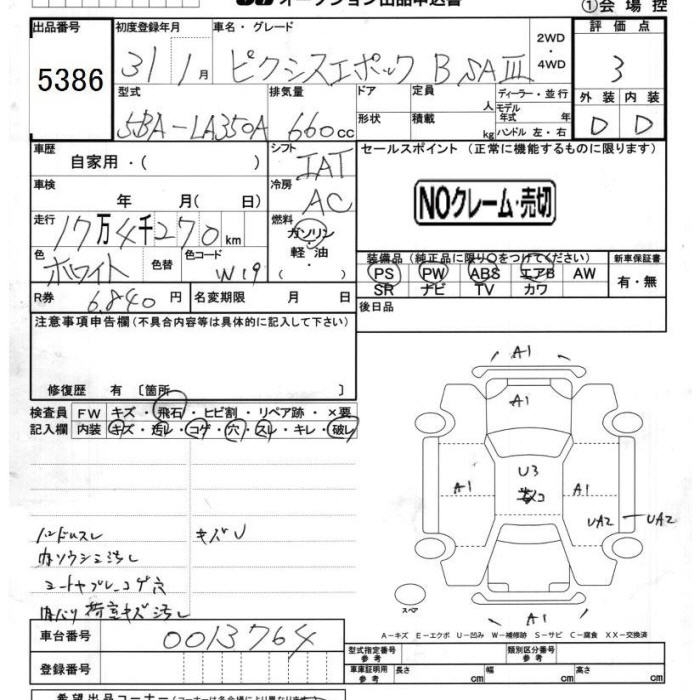 オークション出品申込書 ①会場控
出品番号 5386
初度登録年月 31 1月
車名・グレード ピクシスエポック B SAⅢ
2WD・4WD
評価点 3
型式 5BA-LA350A
排気量 660cc
ドア 形状
定員 人 積載 kg
ディーラー・並行
モデル年式 年
ハンドル 左・右
外装 内装
D D
車歴 自家用・( )
シフト IAT
車検 年 月( 日)
冷房 AC
走行 17万4千270km
燃料 ガソリン・軽油・( )
色 ホワイト 色替 色コード W19
R券 6,840円 名変期限 月 日
セールスポイント (正常に機能するものに限ります)
NOクレーム・売切
装備品(純正品に限り○をつけてください) 新車保証書
PS PW ABS エアB AW 有・無
SR ナビ TV カワ
後日品
注意事項申告欄(不具合内容等は具体的に記入して下さい)
修復歴 有 〔箇所 〕
検査員 FW キズ・飛石・ヒビ割・リペア跡・×要
記入欄 内装 キズ・汚レ・コゲ・穴・スレ・キレ・破レ
ハンドルスレ キズU
内ソウシミ汚レ
シートヤブレコゲ穴
内バリ荷室キズ汚レ
A1
A1
U3
数コ
A1 A1
UA2 UA2
A1
スペア
A-キズ E-エクボ U-凹み W-補修跡 S-サビ C-腐食 XX-交換済
車台番号 0013764
登録番号
型式指定番号 参考 類別区分番号 参考
車庫証明用 参考 長さ cm 幅 cm 高さ cm
希望出品コーナー